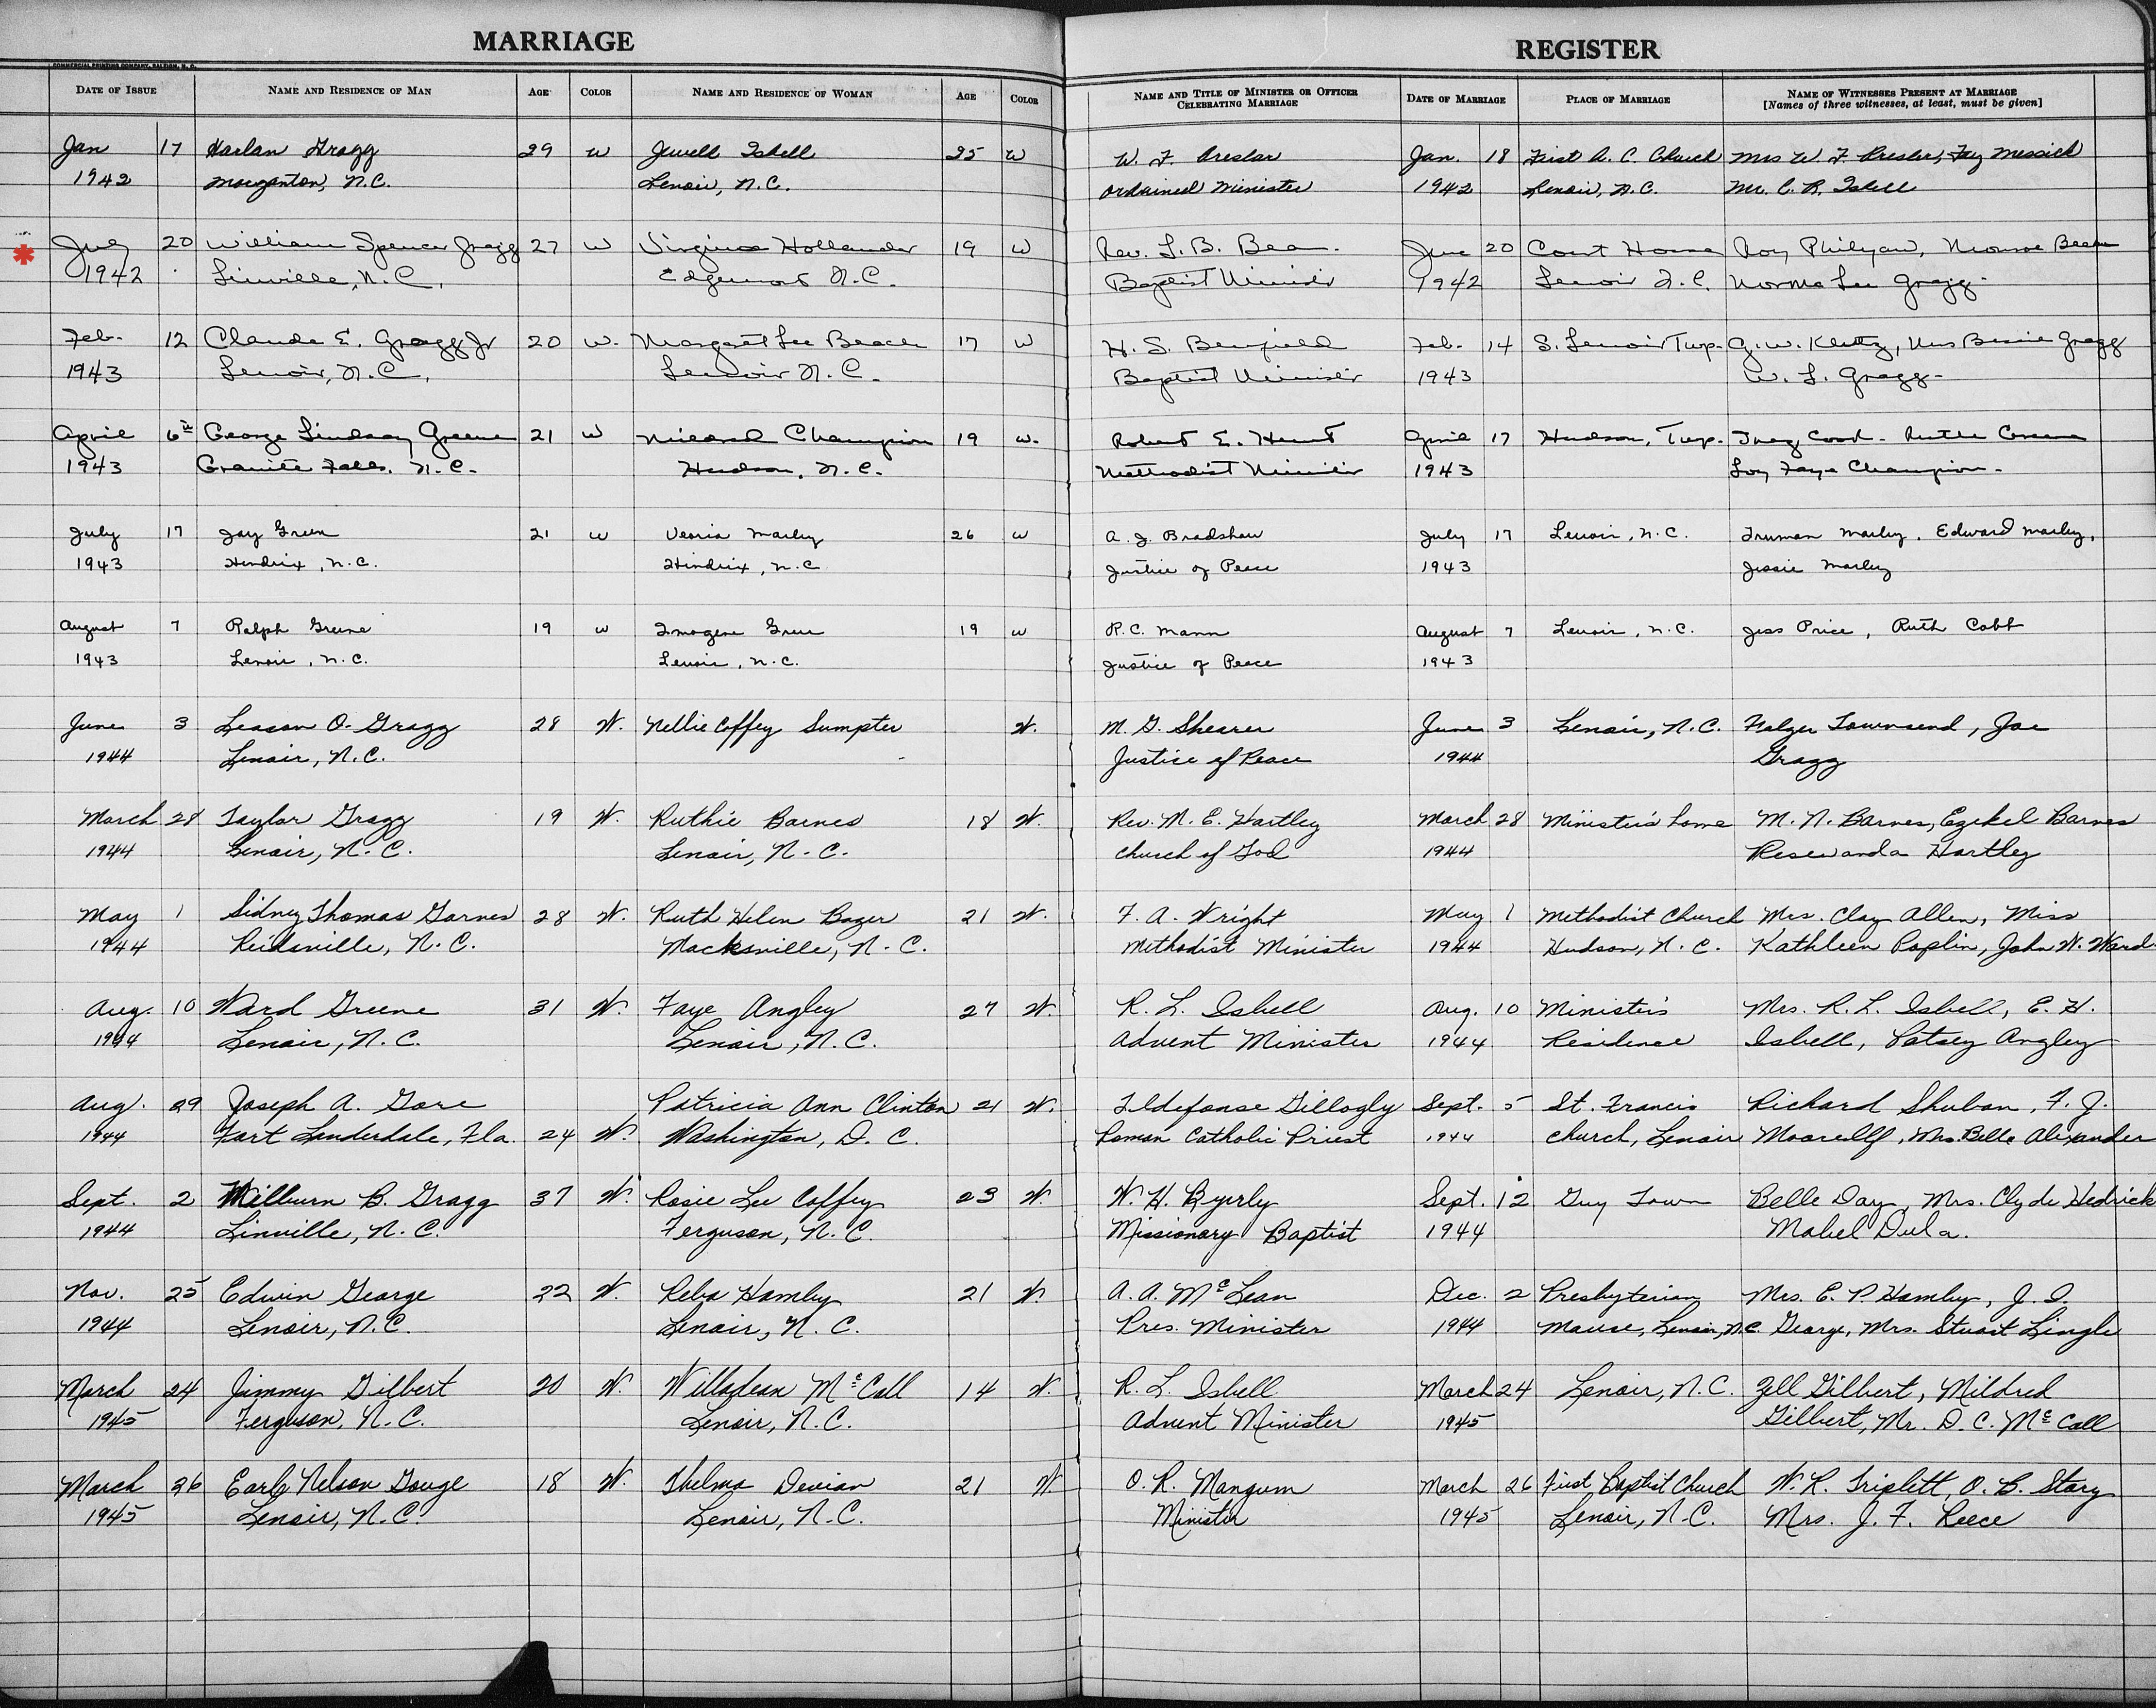 MARRIAGE
REGISTER
COMMERCIAL PRINTING COMPANY, RALEIGH, N. C.
DATE OF ISSUE NAME AND RESIDENCE OF MAN AGE COLOR NAME AND RESIDENCE OF WOMAN AGE COLOR NAME AND TITLE OF MINISTER OR OFFICER CELEBRATING MARRIAGE DATE OF MARRIAGE PLACE OF MARRIAGE NAME OF WITNESSES PRESENT AT MARRIAGE
[Names of three witnesses, at least, must be given]
Jan 17 Harlan Gragg 29 W Jewell Isbell 25 W W. F. Bresler Jan. 18 First A. C. Church Mrs W. F. Bresler, Fay Messick
1942 Morganton, N.C. Lenoir, N.C. Ordained Minister 1942 Lenoir, N.C. Mr. C. R. Isbell
20 William Spencer Gragg 27 W Virginia Hollander 19 W Rev. L. B. Bea. June 20 Court House Roy Philyaw, Monroe Beam
1942 Linville, N.C. Edgemont N.C. Baptist Minister 1942 Lenoir N.C. Norma Lee Gragg
Feb. 12 Claude E. Gragg Jr 20 W. Margaret Lee Beach 17 W H. S. Benfield Feb. 14 S. Lenoir Twp. G. W. Klutz, Mrs Bessie Gragg
1943 Lenoir, N.C. Lenoir N.C. Baptist Minister 1943 W. L. Gragg
April 6th George Lindsay Greene 21 W Mildred Champion 19 W. Robert E. Hunt April 17 Hudson, Twp. Inez Cook - Ruth Greene
1943 Granite Falls, N.C. Hudson, N.C. Methodist Minister 1943 Loy Faye Champion
July 17 Jay Green 21 W Veoria Marley 26 W A. J. Bradshaw July 17 Lenoir, N.C. Truman Marley, Edward Marley,
1943 Hendrix, N.C. Hindrix, N.C Justice of Peace 1943 Jessie Marley
August 7 Ralph Greene 19 W Imogene Greene 19 W R.C. Mann August 7 Lenoir, N.C. Jess Price, Ruth Cobb
1943 Lenoir, N.C. Lenoir, N.C. Justice of Peace 1943
June 3 Leason O. Gragg 28 W. Nellie Coffey Sumpter W. M. G. Shearer June 3 Lenoir, N.C. Folger Townsend, Joe
1944 Lenoir, N.C. Justice of Peace 1944 Gragg
March 28 Taylor Gragg 19 W. Ruthie Barnes 18 W. Rev. M. E. Hartley March 28 Minister's home M. N. Barnes, Ezekel Barnes
1944 Lenoir, N.C. Lenoir, N.C. Church of God 1944 Resewanda Hartley
May 1 Sidney Thomas Garnes 28 W. Ruth Helen Bozer 21 W. F. A. Wright May 1 Methodist Church Mrs. Clay Allen, Miss
1944 Reidsville, N.C. Macksville, N.C. Methodist Minister 1944 Hudson, N.C. Kathleen Poplin, John W. Ward
Aug. 10 Ward Greene 31 W. Faye Angley 27 W. R. L. Isbell Aug. 10 Minister's Mrs. R. L. Isbell, E. H.
1944 Lenoir, N.C. Lenoir, N.C. Advent Minister 1944 Residence Isbell, Patsey Angley
Aug. 29 Joseph A. Gore Patricia Ann Clinton 21 W. Ildefonse Gillogly Sept. 5 St. Francis Richard Shuban, F. J.
1944 Fort Lauderdale, Fla. 24 W. Washington, D. C. Roman Catholic Priest 1944 Church, Lenoir Mrs. Belle Alexander
Sept. 2 Milburn B. Gragg 37 W. Rosie Lee Coffey 23 W. W. H. Byerly Sept. 12 Guy Town Belle Day, Mrs. Clyde Hedrick
1944 Linville, N.C. Ferguson, N.C. Missionary Baptist 1944 Mabel Dula.
Nov. 25 Edwin George 22 W. Reba Hamby 21 W. A. A. McLean Dec. 2 Presbyterian Mrs. E. P. Hamby, J. I.
1944 Lenoir, N.C. Lenoir, N.C. Pres. Minister 1944 Manse, Lenoir, N.C. George, Mrs. Stuart Lingle
March 24 Jimmy Gilbert 20 W. Willadean McCall 14 W. R. L. Isbell March 24 Lenoir, N.C. Zell Gilbert, Mildred
1945 Ferguson, N.C. Lenoir, N.C. Advent Minister 1945 Gilbert, Mr. D. C. McCall
March 26 Earl Nelson Gouge 18 W. Thelma Devian 21 W. O. R. Mangum March 26 First Baptist Church W. R. Triplett, O. B. Story
1945 Lenoir, N.C. Lenoir, N.C. Minister 1945 Lenoir, N.C. Mrs. J. F. Reece